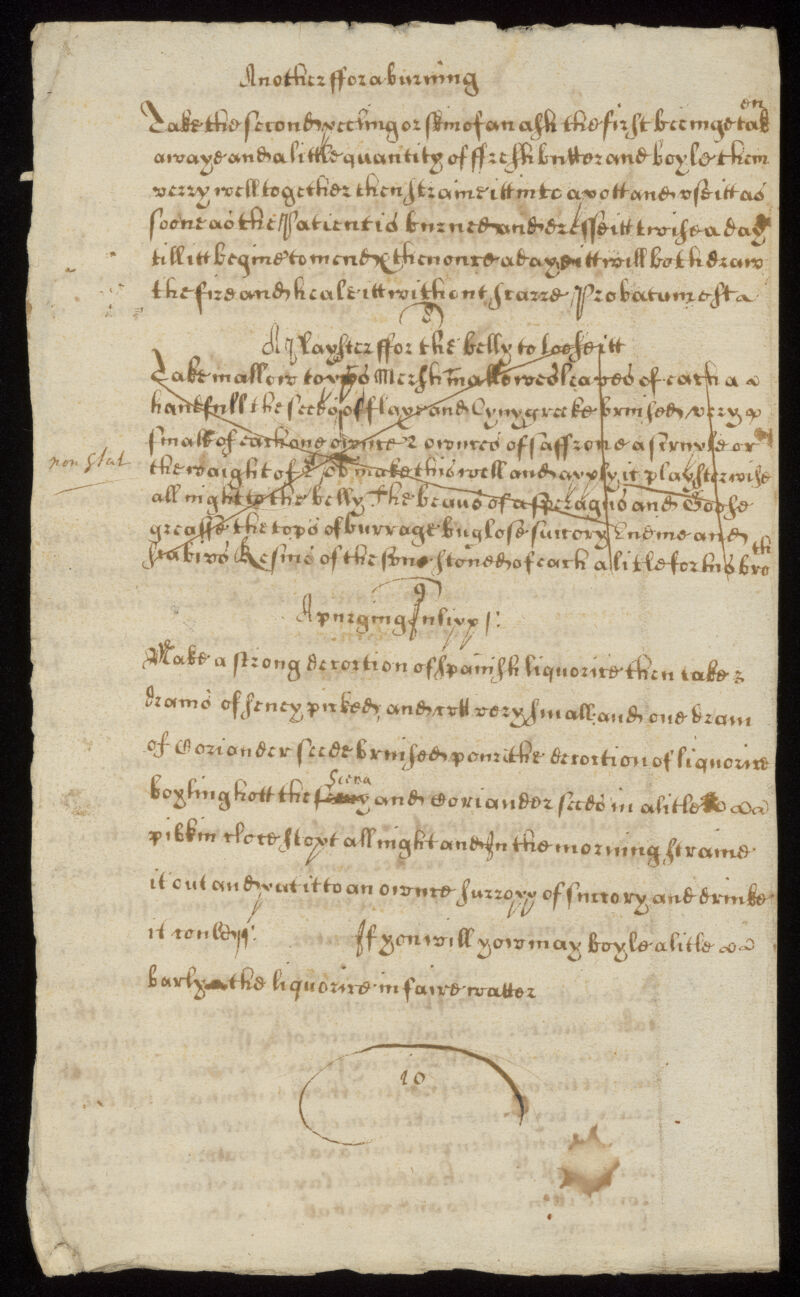 Another ffor a burning
Take the second peeling or skin of an ash the first beeinge taken
awaye and a little quantity of ffresh butter and boyle them
verry well together then straine itt into a pott and use itt as
soone as the Patient is burned and dresse itt twise a day
till itt begine to mend & then once a daye itt will both draw
the fire and heale itt without scarre Probatum est
8
A Playster ffor the belly to loose itt
Take mallow topps Mersh mallowes leaves of each a
handfull the seeds of flaxe and ffynygreeke bruised very
small of each one ownce 2 ownces of saffrone a scruple or
non stat
the waight of make this well and apply it playsterwise
all night to the belly The of asperagus and Goose
greasse the tops of burrage buglose succory Endine and
Resins of the sun stoned of each a litle for his broth
9
A purging Julipp
Make a strong decoction of spanish liquorice then take 2
drams of seney picked and cutt very small and one dram
of Coriander seede bruised poure the decoction of liquorice
boyling hott the Scena and Coriander seeds in a litle
pibkin close stopt all night and In the morning straine
it out and put it to an ownce surropp of succory and drinke
it could If you will you may boyle a litle
barly the liquorice in faire watter
10